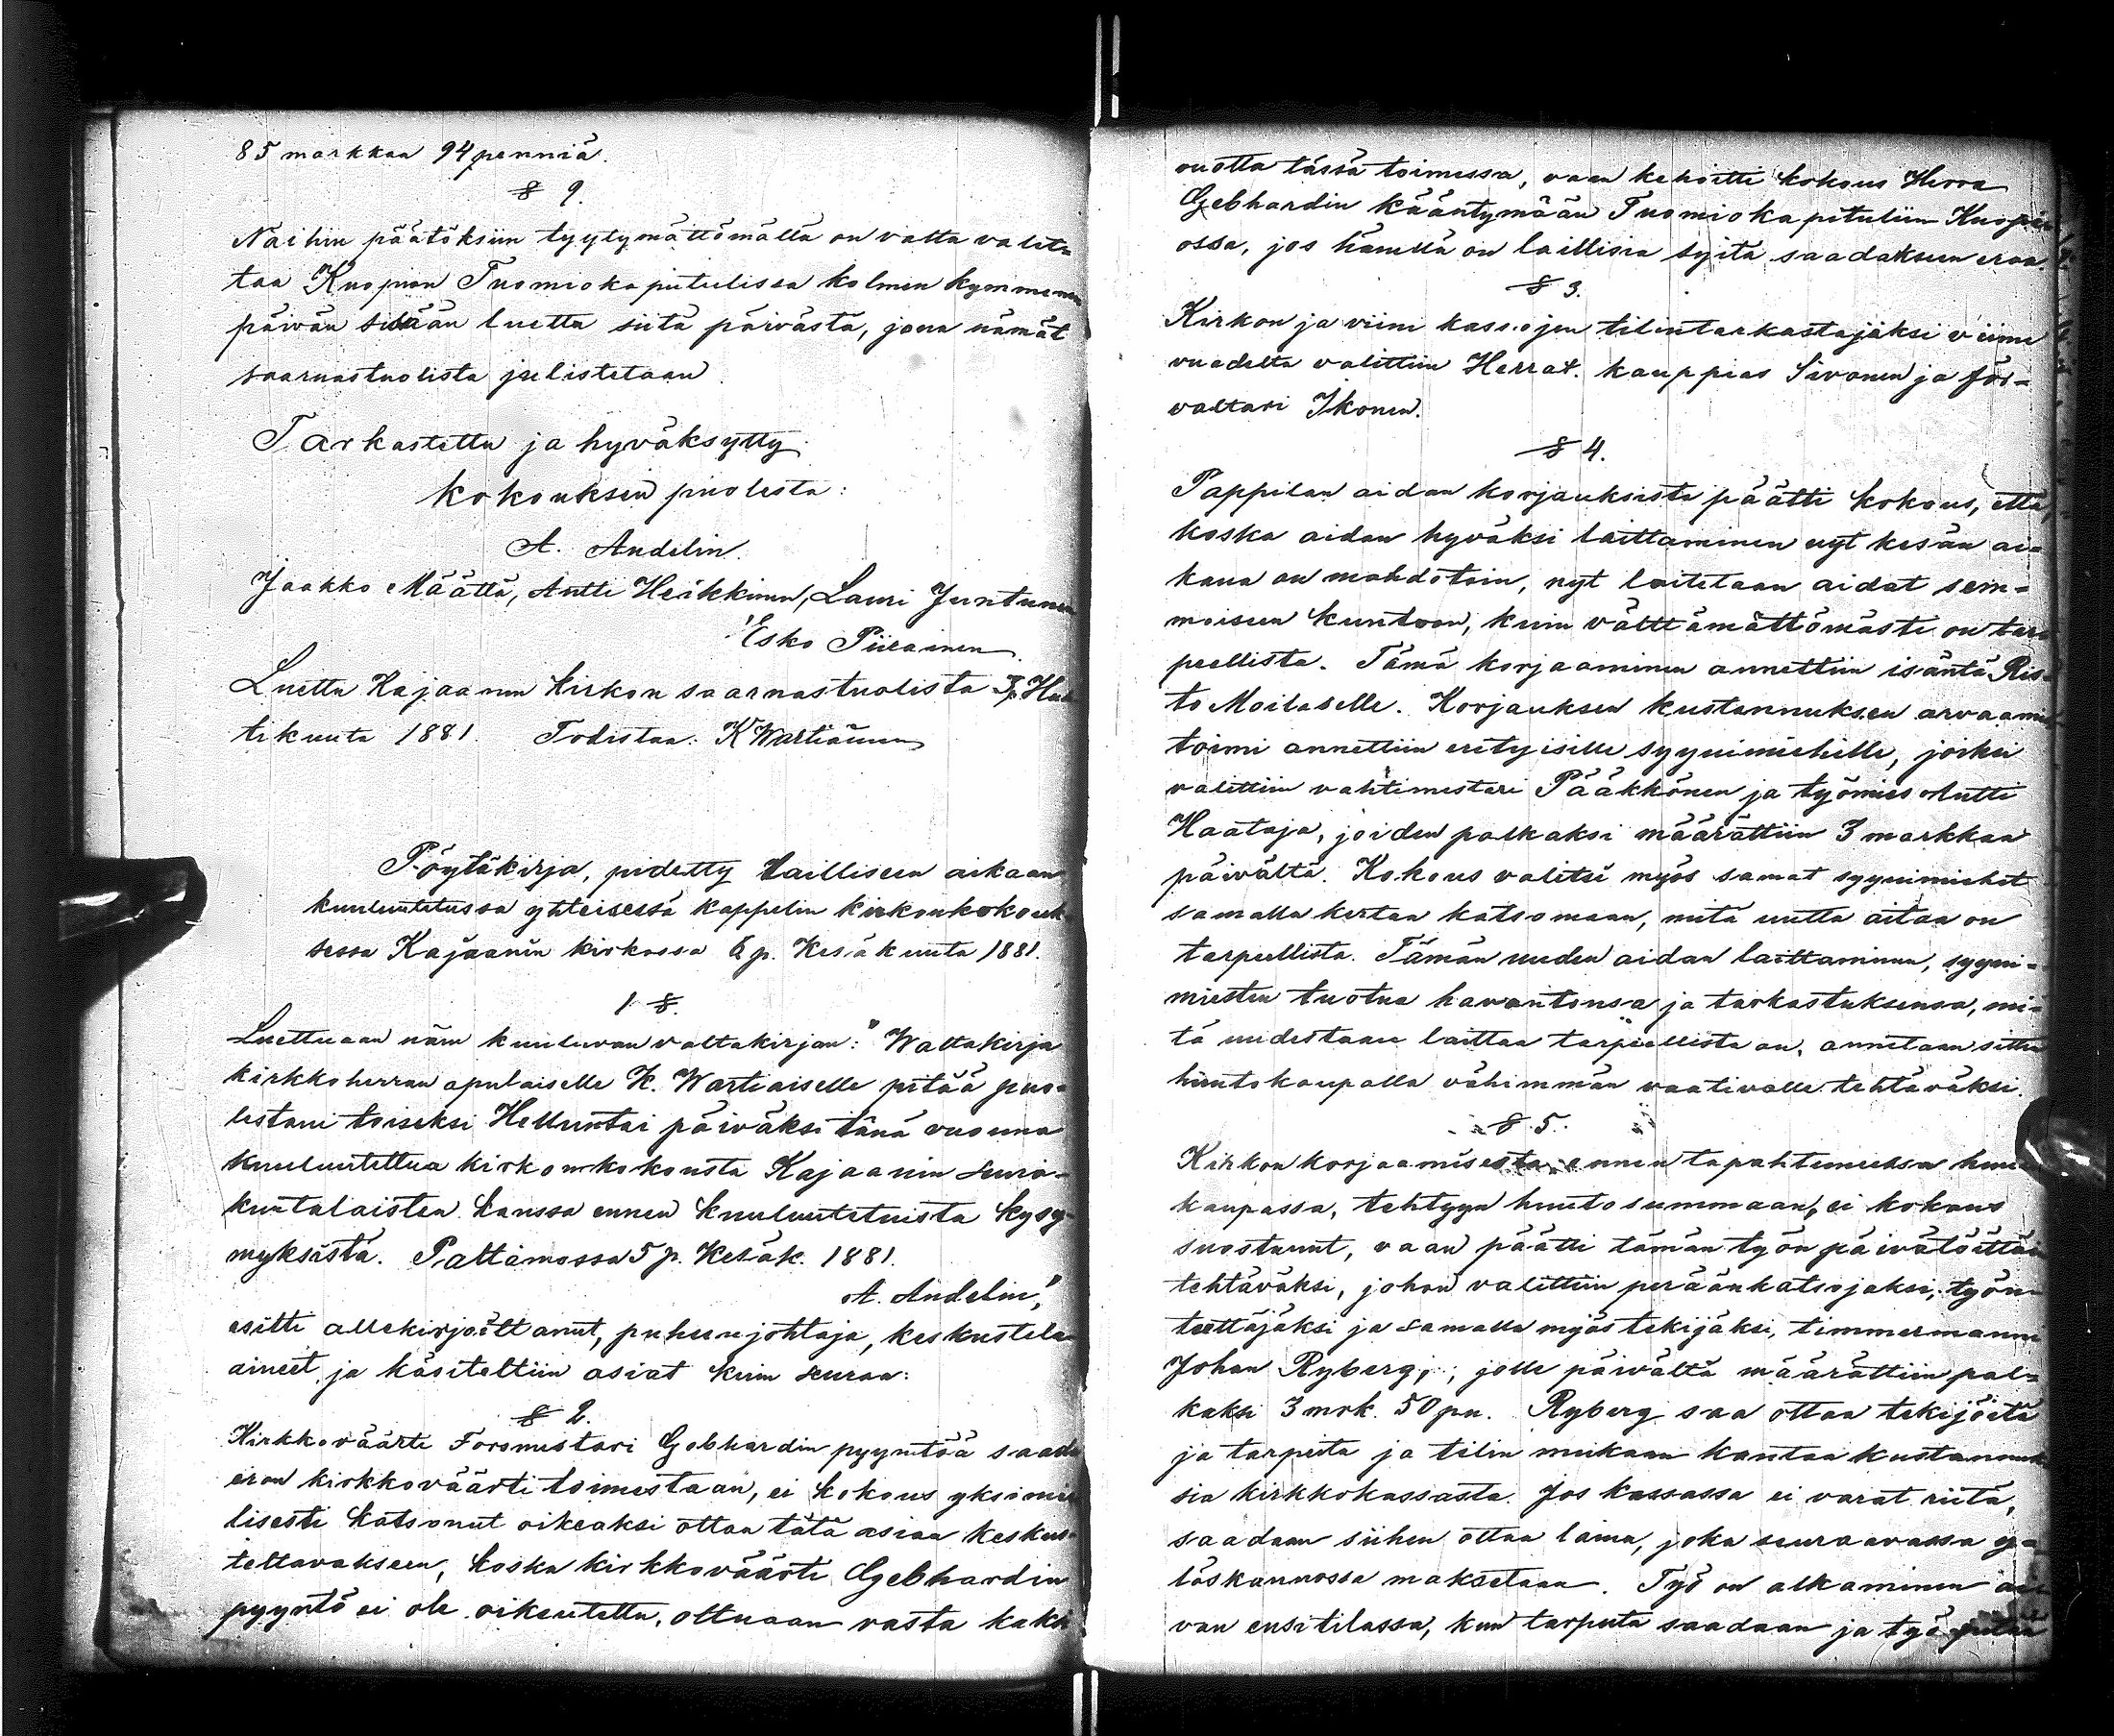 85 markkaa 94 penniä.
§ 9.
Näihin päätöksiin tyytymättömällä on valta valit-
taa Kuopion Tuomiokapitulissa kolmen kymmenen
päivän sisään luettu siitä päivästä, jona nämät
saarnastuolista julistetaan.
Tarkastettu ja hyväksytty
kokouksen puolesta:
A. Andelin.
Jaakko Määttä, Antti Heikkinen, Lauri Juntunen
Esko Piirainen.
Luettu Kajaanin kirkon saarnastuolista 3 p. Huh
tikuuta 1881. Todistaa: K Wartiainen
Pöytäkirja, pidetty lailliseen aikaan
kuulutetussa yhteisessä kappelin kirkonkokouk
sessa Kajaanin kirkossa 6 p. Kesäkuuta 1881.
1 §.
Luettuaan näin kuuluvan valtakirjan: "Waltakirja
kirkkoherran apulaiselle K. Wartiaiselle pitää puo-
lestani toiseksi Helluntai päiväksi tänä vuonna
kuulutettua kirkonkokousta Kajaanin seura-
kuntalaisten kanssa ennen kuulutetuista kysy-
myksistä. Paltamossa 5 p. Kesäk. 1881.
A. Andelin,"
esitti allekirjoittanut, puheenjohtaja, keskustelu
aineet, ja käsiteltiin asiat kuin seuraa:
§ 2.
Kirkkoväärti Forsmestari Gebhardin pyyntöä saada
eron kirkkoväärti toimestaan, ei kokous yksimie
lisesti katsonut oikeaksi ottaa tätä asiaa keskus-
teltavakseen, koska kirkkoväärti Gebhardin
pyyntö ei ole oikeutettu, oltuaan vasta kaksi
vuotta tässä toimessa, vaan kehoitti kokous Herra
Gebhardin kääntymään Tuomiokapituliin Kuopi
ossa, jos hänellä on laillisia syitä saadakseen eroa.
§ 3.
Kirkon ja viini kassojen tilintarkastajaksi viime
vuodelta valittiin Herrat. kauppias Sivonen ja för-
valtari Ikonen.
§ 4.
Pappilan aidan korjauksista päätti kokous, että,
koska aidan hyväksi laittaminen nyt kesän ai-
kana on mahdotoin, nyt laitetaan aidat sem-
moiseen kuntoon, kuin välttämättömästi on tar-
peellista. Tämä korjaaminen annettiin isäntä Ris-
to Moilaselle. Korjauksen kustannuksen arvaamis
toimi annettiin erityisille syynimiehille, joiksi
valittiin vahtimestari Pääkkönen ja työmies Antti
Haataja, joiden palkaksi määrättiin 3 markkaa
päivältä. Kokous valitsi myös samat syynimiehet
samalla kertaa katsomaan, mitä uutta aitaa on
tarpeellista. Tämän uuden aidan laittaminen, syyni-
miesten tuotua havantonsa ja tarkastuksensa, mi-
tä uudestaan laittaa tarpeellista on, annetaan sitte
huutokaupalla vähimmän vaativalle tehtäväksi.
§ 5.
Kirkon korjaamisesta ennen tapahtuneessa huuto
kaupassa, tehtyyn huutosummaan, ei kokous
suostunut, vaan päätti tämän työn päivätöittäin
tehtäväksi, johon valittiin peräänkatsojaksi, työn
teettäjäksi ja samalla myös tekijäksi, timmermanni
Johan Ryberg, jolle päivältä määrättiin pal-
kaksi 3 mrk. 50 pn. Ryberg saa ottaa tekijöitä
ja tarpeita ja tilin mukaan kantaa kustannuk
sia kirkkokassasta. Jos kassassa ei varat riitä,
saadaan siihen ottaa laina, joka seuraavassa y-
löskannossa maksetaan. Työ on alkaminen ai
van ensi tilassa, kun tarpeita saadaan ja työ pitää